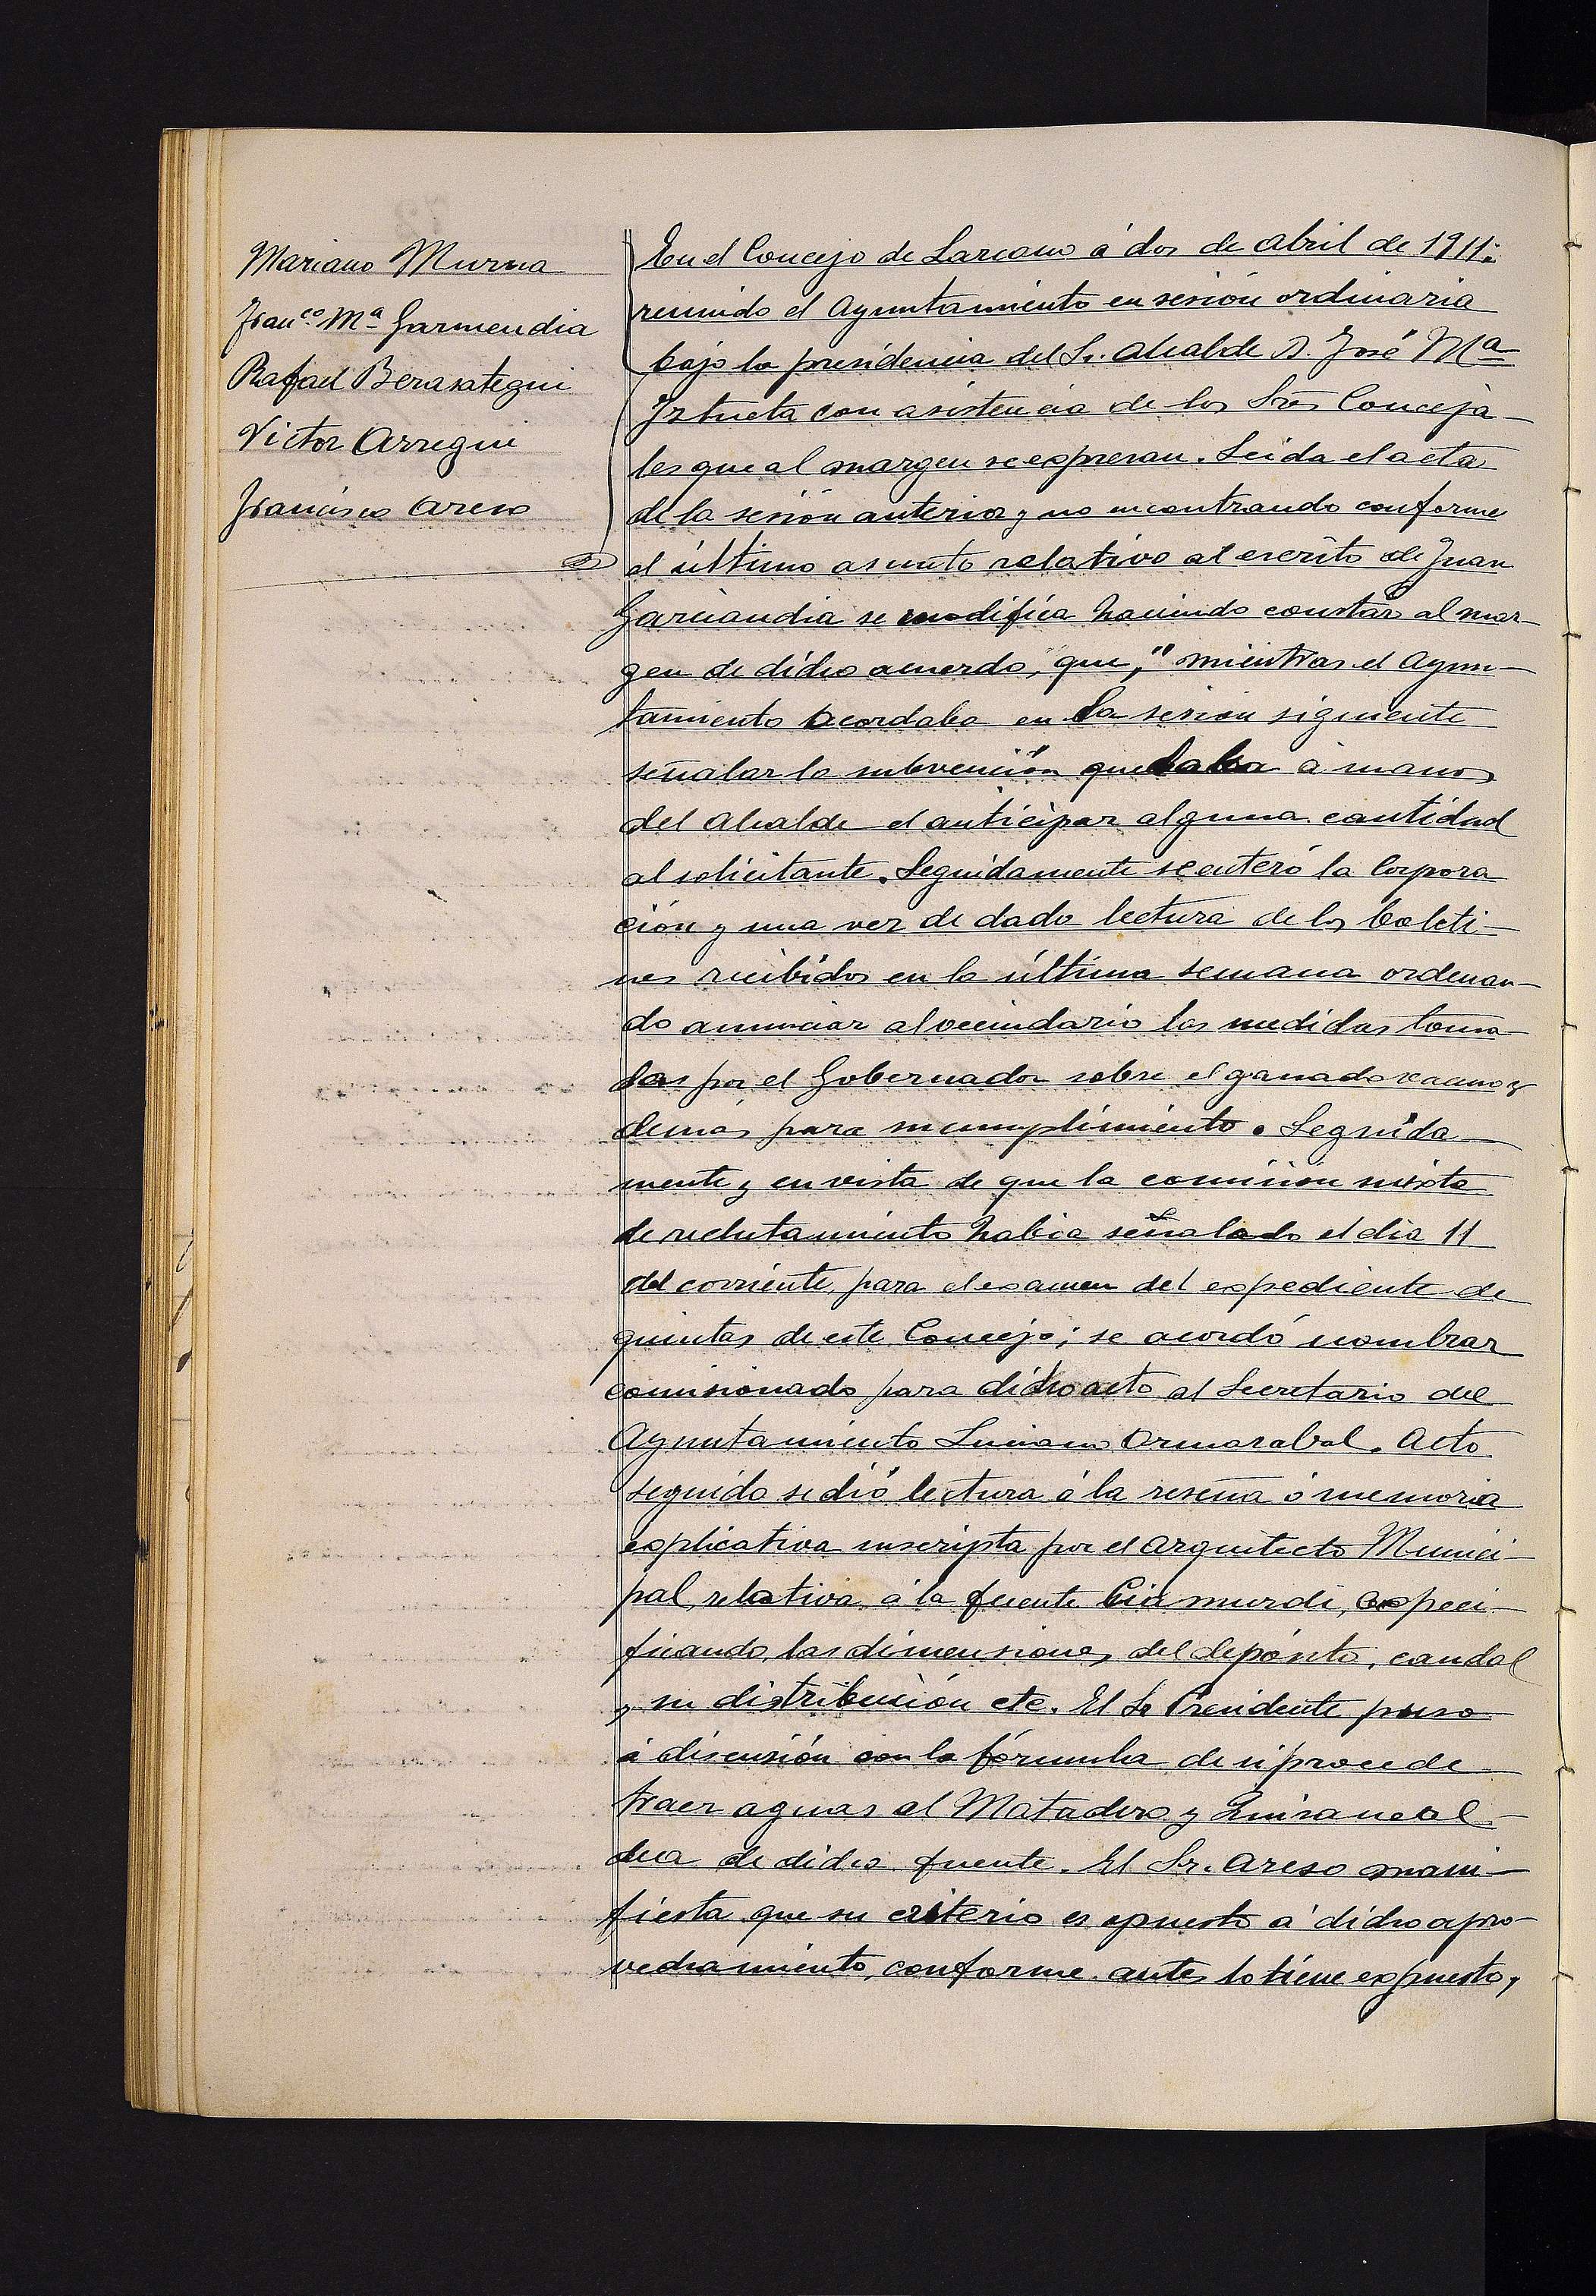 Mariano Murua
Franco. Ma Garmendia
Rafael Berasategui
Victor Arregui
Francisco Areso
En el Concejo de Lazcano á dos de Abril de 1911:
reunido el Ayuntamiento en sesión ordinaria
bajo la presidencia del Sr. Alcalde D. José Ma
Iztueta con asistencia de los Sres Conceja-
les que al margen se expresan. Leida el acta
de la sesión anterior y no encontrando conforme
el último asunto relativo al escrito de Juan
Garciandia se modifica haciendo constar al mar-
gen de dicho acuerdo, que, " mientras el Ayun-
tamiento acordaba en la sesion siguiente
señalar la subvención quedaba á manos
del Alcalde el anticipar alguna cantidad
al solicitante. Seguidamente se enteró la Corpora
ción y una vez de dado lectura de los boleti-
nes recibidos en la última semana ordenan-
do anunciar al vecindario las medidas toma-
das por el Gobernador sobre el ganado vacuno y
demás para su cumplimiento. Seguida-
mente y en vista de que la comision mixta
de reclutamiento habia señalado el dia 11
del corriente, para el examen del expediente de
quintas de este Concejo; se acordó nombrar
comisionado para dicho acto al Secretario del
Ayuntamiento Luciano Ormazabal. Acto
seguido se dió lectura á la reseña ó memoria
explicativa suscripta por el Arquitecto Munici-
pal, relativa á la fuente murdi, especi-
ficando, las dimensiones del depósito, caudal
y su distribución etc. El Sr Presidente puso
á discusión con la fórmula de si procede
traer aguas al Matadero y Zuizaneal-
dea de dicha fuente. El Sr. Areso mani-
fiesta que su criterio es opuesto á dicho apro-
vechamiento, conforme antes lo tiene expuesto,